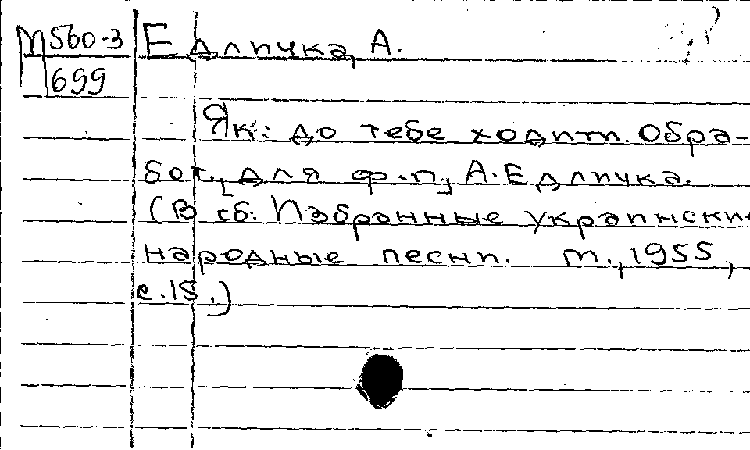 М560-3 Едличка, А.
699
Як до тебе ходити. Обра-
бот. для ф.-п. А. Едличка.
(В сб. Избранные украински
народные песни. М., 1955,
с. 15.)